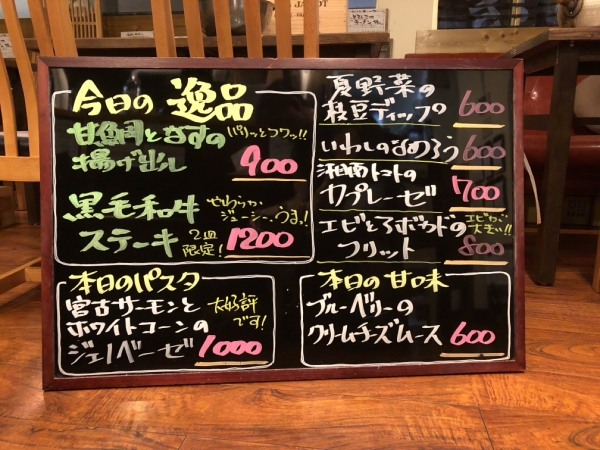 今日の逸品
甘鯛となすの
揚げ出し
パリッとフワッ!!
900
黒毛和牛
ステーキ
やわらか
ジューシー、うまっ!
2皿
限定!
1200
夏野菜の
枝豆ディップ
600
いわしのなめろう
600
湘南トマトの
カプレーゼ
700
エビとアボカドの
フリット
エビが
大きい!!
800
本日のパスタ
宮古サーモンと
ホワイトコーンの
ジェノベーゼ
大好評
です!
1000
本日の甘味
ブルーベリーの
クリームチーズムース
600